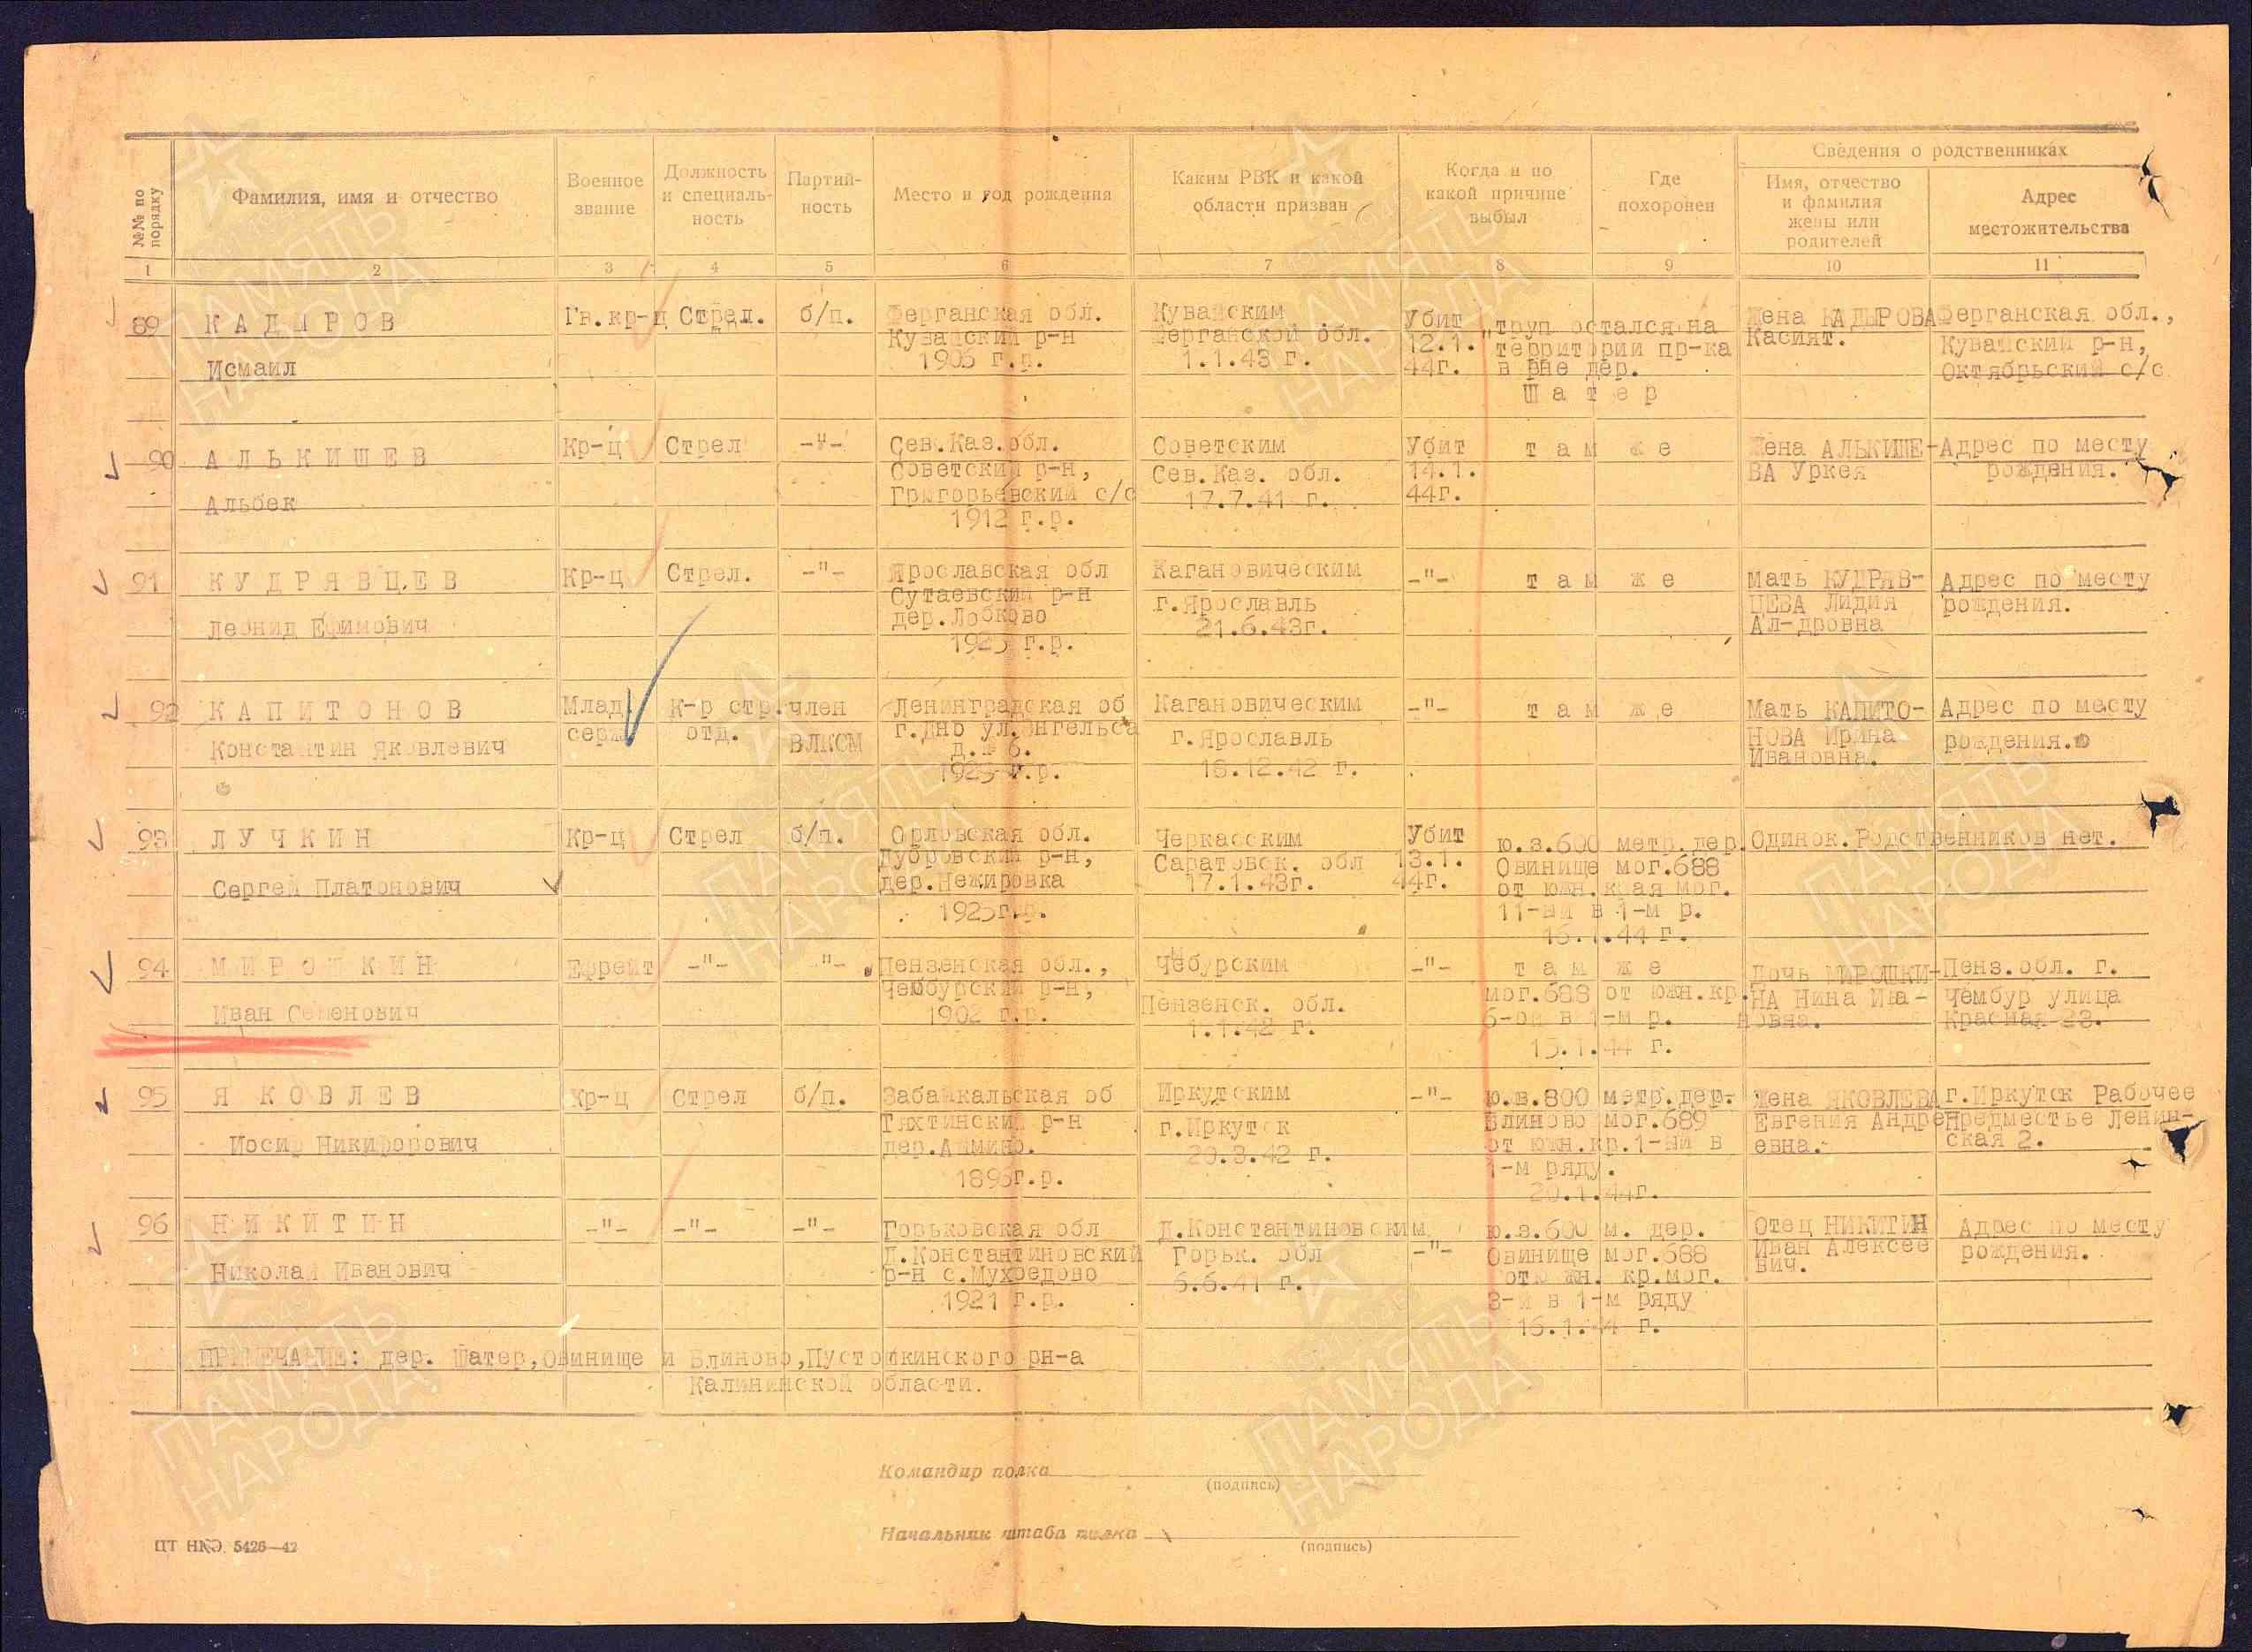 №№ по порядку
Фамилия, имя и отчество
Военное звание
Должность и специаль-ность
Партий-ность
Место и год рождения
Каким РВК и какой области призван
Когда и по какой причине выбыл
Где похоронен
Сведения о родственниках
Имя, отчество и фамилия жены или родителей
Адрес местожительства
1 2 3 4 5 6 7 8 9 10 11
89 КАДЫРОВ Гв.кр-ц Стрел. б/п. Ферганская обл. Кувайским Убит "труп остался на Жена КАДЫРОВА Ферганская обл.,
Кувайский р-н Ферганской обл. 12.1. территории пр-ка Касият. Кувайский р-н,
Исмаил 1905 г.р. 1.1.43 г. 44г. в рне дер. Октябрьский с/с
Шатер
90 АЛЬКИШЕВ Кр-ц Стрел -"- Сев.Каз.обл. Советским Убит там же Жена АЛЬКИШЕ- Адрес по месту
Советский р-н, Сев.Каз. обл. 14.1. ВА Уркея рождения.
Альбек Григорьевский с/с 17.7.41 г. 44г.
1912 г.р.
91 КУДРЯВЦЕВ Кр-ц Стрел. -"- Ярославская обл Кагановическим -"- там же Мать КУДРЯВ- Адрес по месту
Сутаевский р-н г.Ярославль ЦЕВА Лидия рождения.
Леонид Ефимович дер.Лобково 21.6.43г. Ал-дровна
1925 г.р.
92 КАПИТОНОВ Млад. К-р стр. член Ленинградская об Кагановическим -"- там же Мать КАПИТО- Адрес по месту
серж. отд. ВЛКСМ г.Дно ул.Энгельса г.Ярославль НОВА Ирина рождения.
Константин Яковлевич д.№6. 16.12.42 г. Ивановна.
1923 г.р.
93 ЛУЧКИН Кр-ц Стрел б/п. Орловская обл. Черкасским Убит ю.з.600 метр.дер. Одинок.Родственников нет.
Дубровский р-н, Саратовск. обл 13.1. Овинище мог.688
Сергей Платонович дер.Нежировка 17.1.43г. 44г. от южн.края мог.
1925г.р. 11-ый в 1-м р.
16.1.44 г.
94 МИРОШКИН Ефрейт -"- "- Пензенская обл., Чембурским -"- там же Дочь МИРОШКИ- Пенз.обл. г.
Чембурский р-н, Пензенск. обл. мог.688 от южн.кр. НА Нина Ива- Чембур улица
Иван Семенович 1902 г.р. 1.1.42 г. 6-ой в 1-м р. новна. Красная 23.
15.1.44 г.
95 ЯКОВЛЕВ Кр-ц Стрел б/п. Забайкальская об Иркутским -"- ю.в.800 метр.дер- Жена ЯКОВЛЕВА г.Иркутск Рабочее
Тяхтинский р-н г.Иркутск Блиново мог.689 Евгения Андре предместье Ленин-
Иосиф Никифорович 20.3.42 г. от южн.кр.1-ый в евна. ская 2.
1-м ряду.
1895г.р. 20.1.44г.
96 НИКИТИН -"- -"- -"- Горьковская обл Д.Константиновским -"- ю.з.600 м. дер. Отец НИКИТИН Адрес по месту
Д.Константиновский Горьк. обл Овинище мог.688 Иван Алексее рождения.
Николай Иванович р-н с.Мухоедово 6.6.41 г. от южн. кр.мог. вич.
1921 г.р. 8-й в 1-м ряду
16.1.44 г.
ПРИМЕЧАНИЕ: дер. Шатер,Овинище и Блиново,Пустошкинского рн-а
Калининской области.
Командир полка
(подпись)
Начальник штаба полка
(подпись)
ЦТ НКО. 5426—42
ПАМЯТЬ НАРОДА
ПАМЯТЬ НАРОДА
ПАМЯТЬ НАРОДА
ПАМЯТЬ НАРОДА
ПАМЯТЬ НАРОДА
ПАМЯТЬ НАРОДА